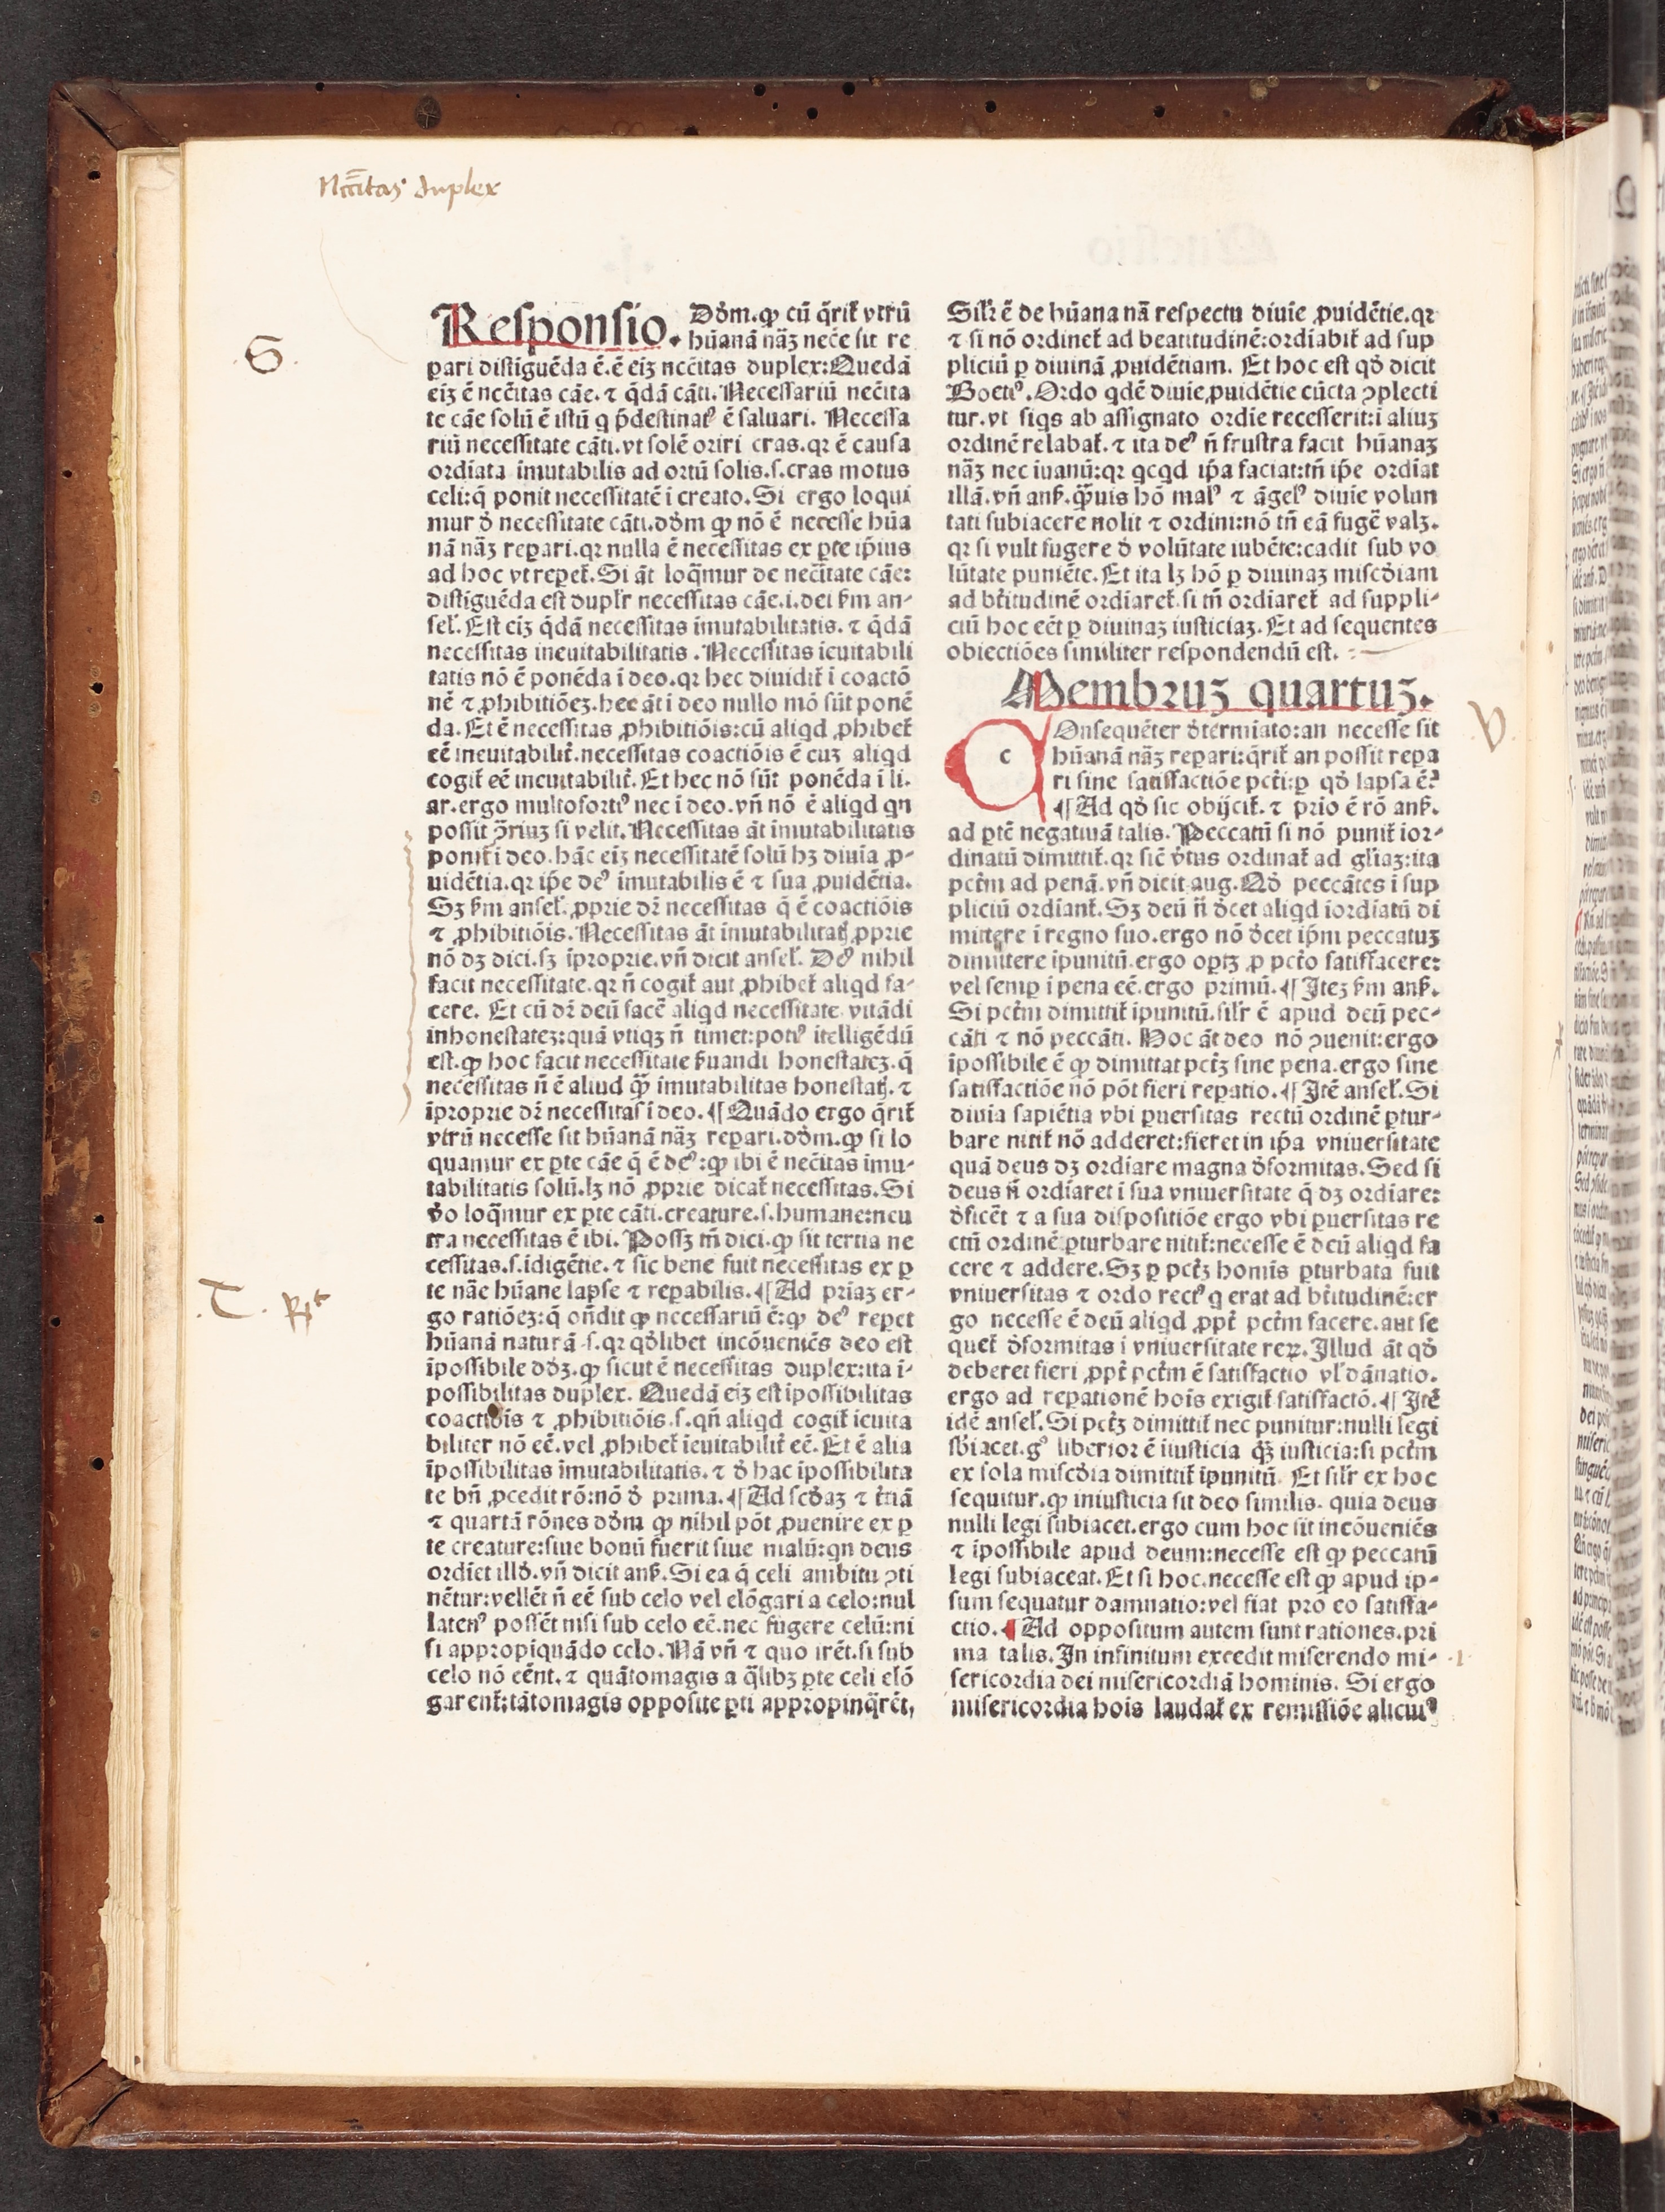 Nccitas duplex
S.
Responsio. Dd̄m. ꝙ cū q̄rit̄ vtrū
hūanā nāꝫ nec̄e sit re
pari distiguēda ē. ē eiꝫ nccītas duplex: Quedā
eiꝫ ē nccītas cāe. ⁊ q̄dā cāti. Necessariū necīta
te cāe solū ē istū q p̄destinatꝰ ē saluari. Necessa
riū necessitate cāti. vt solē oriri cras. qꝛ ē causa
ordiata imutabilis ad ortū solis. s. cras motus
celi: q̄ ponit necessitatē i creato. Si ergo loqui
mur đ necessitate cāti. dđm ꝙ nō ē necesse hūa
nā nāꝫ reꝑari. qꝛ nulla ē necessitas ex ꝑte ip̄ius
ad hoc vt reꝑet̄. Si āt loq̄mur de nec̄itate cāe:
distiguēda est dupl̄r necessitas cāe. i. dei ẜm an-
sel̄. Est eiꝫ q̄dā necessitas imutabilitatis. ⁊ q̄dā
necessitas ineuitabilitatis. Necessitas ieuitabili
tatis nō ē ponēda i deo. qꝛ hec diuidit̄ i coactō
nē ⁊ ꝓhibitiōeꝫ. hec āt i deo nullo mō sūt ponē
da. Et ē necessitas ꝓhibitiōis: cū aliqd ꝓhibet̄
eē ineuitabilit̄. necessitas coactiōis ē cuꝫ aliqd
cogit̄ eē ineuitabilit̄. Et hec nō sūt ponēda i li.
ar. ergo multofortiꝰ nec i deo. vn̄ nō ē aliqd qn
possit ꝯ̄riuꝫ si velit. Necessitas āt imutabilitatis
ponit̄ i deo. hāc eiꝫ necessitatē solū hꝫ diuia ꝓ-
uidētia. qꝛ ip̄e deꝰ imutabilis ē ⁊ sua ꝓuidētia.
Sꝫ ẜm ansel̄. ꝓprie dr̄ necessitas q̄ ē coactiōis
⁊ ꝓhibitiōis. Necessitas āt imutabilitatꝭ ꝓprie
nō dꝫ dici. sꝫ iproprie. vn̄ dicit ansel̄. Deꝰ nihil
facit necessitate. qꝛ n̄ cogit̄ aut ꝓhibet̄ aliqd fa-
cere. Et cū dr̄ deū facē aliqd necessitate vitādi
inhonestateꝫ: quā vtiqꝫ n̄ timet: potiꝰ itelligēdū
est. ꝙ hoc facit necessitate ẜuandi honestateꝫ. q̄
necessitas n̄ ē aliud qꝫ̄ imutabilitas honestatꝭ. ⁊
īproprie dr̄ necessitas i deo. ¶ Quādo ergo q̄rit̄
vtrū necesse sit hūanā nāꝫ reꝑari. dđm. ꝙ si lo
quamur ex ꝑte cāe q̄ ē deꝰ: ꝙ ibi ē nec̄itas imu-
tabilitatis solū. lꝫ nō ꝓprie dicat̄ necessitas. Si
v̊o loq̄mur ex ꝑte cāti. creature. s. humane: neu
tra necessitas ē ibi. Possꝫ tn̄ dici. ꝙ sit tertia ne
cessitas. s. idigētie. ⁊ sic bene fuit necessitas ex ꝑ
.T. Rṗ
te nāe hūane lapse ⁊ reꝑabilis. ¶ Ad priaꝫ er-
go ratiōeꝫ: q̄ on̄dit ꝙ necessariū ē: ꝙ deꝰ reꝑet
hūanā naturā. s. qꝛ qđlibet incōueniēs deo est
ipossibile dđꝫ. ꝙ sicut ē necessitas duplex: ita i-
possibilitas duplex. Quedā eiꝫ est ipossibilitas
coactiōis ⁊ ꝓhibitiōis. s. qn̄ aliqd cogit̄ ieuita
biliter nō eē. vel ꝓhibet̄ ieuitabilit̄ eē. Et ē alia
īpossibilitas imutabilitatis. ⁊ đ hac ipossibilita
te bn̄ ꝓcedit rō: nō đ prima. ¶ Ad scđaꝫ ⁊ t̄tiā
⁊ quartā rōnes dđm ꝙ nihil pōt ꝓuenire ex ꝑ
te creature: siue bonū fuerit siue malū: qn deus
ordiet illđ. vn̄ dicit anẜ. Si ea q̄ celi ambitu ꝯti
nētur: vellēt n̄ eē sub celo vel elōgari a celo: nul
latenꝰ possēt nisi sub celo eē. nec fugere celū: ni
si appropiquādo celo. Nā vn̄ ⁊ quo irēt. si sub
celo nō eēnt. ⁊ quātomagis a q̄libꝫ ꝑte celi elō
garent̄: tātomagis opposite ꝑti appropinq̄rēt,
Sil̄r ē de hūana nā respectu diuie ꝓuidētie. qꝛ
⁊ si nō ordinet̄ ad beatitudinē: ordiabit̄ ad sup
pliciū ꝑ diuinā ꝓuidētiam. Et hoc est qđ dicit
Boetiꝰ. Ordo qdē diuie ꝓuidētie cūcta ꝯplecti
tur. vt siqs ab assignato ordie recesserit: i aliuꝫ
ordinē relabat̄. ⁊ ita deꝰ n̄ frustra facit hūanaꝫ
nāꝫ nec iuanū: qꝛ qcqd ip̄a faciat: tn̄ ip̄e ordiat
illā. vn̄ anẜ. qꝫ̄uis hō malꝰ ⁊ āgelꝰ diuie volun
tati subiacere nolit ⁊ ordini: nō tn̄ eā fugē valꝫ.
qꝛ si vult fugere đ volūtate iubēte: cadit sub vo
lūtate puniēte. Et ita lꝫ hō ꝑ diuinaꝫ miscđiam
ad bt̄itudinē ordiaret̄. si tn̄ ordiaret̄ ad suppli-
ciū hoc eēt ꝑ diuinaꝫ iusticiaꝫ. Et ad sequentes
obiectiōes similiter respondendū est.
Membruꝫ quartuꝫ.
V.
c
Onsequēter đtermiato: an necesse sit
hūanā nāꝫ reꝑari: q̄rit̄ an possit reꝑa
ri sine satisfactiōe pct̄i: ꝑ qđ lapsa ē?
¶ Ad qđ sic obijcit̄. ⁊ prio ē rō anẜ.
ad ꝑtē negatiuā talis. Peccatū si nō punit̄ ior-
dinatū dimittit̄. qꝛ sic̄ v̊tus ordinat̄ ad gl̄iaꝫ: ita
pct̄m ad penā. vn̄ dicit aug. Qđ peccātes i sup
pliciū ordiant̄. Sꝫ deū n̄ đcet aliqd iordiatū di
mittere i regno suo. ergo nō đcet ip̄m peccatuꝫ
dimittere ipunitū. ergo optꝫ ꝓ pct̄o satisfacere:
vel semꝑ i pena eē. ergo primū. ¶ Iteꝫ ẜm anẜ.
Si pct̄m dimittit̄ ipunitū. sil̄r ē apud deū pec-
cāti ⁊ nō peccāti. Hoc āt deo nō ꝯuenit: ergo
īpossibile ē ꝙ dimittat pct̄ꝫ sine pena. ergo sine
satisfactiōe nō pōt fieri reꝑatio. ¶ Itē ansel̄. Si
diuia sapiētia vbi ꝑuersitas rectū ordinē ꝑtur-
bare nitit̄ nō adderet: fieret in ip̄a vniuersitate
quā deus dꝫ ordiare magna đformitas. Sed si
deus n̄ ordiaret i sua vniuersitate q̄ dꝫ ordiare:
đficēt ⁊ a sua dispositiōe ergo vbi ꝑuersitas re
ctū ordinē ꝑturbare nitit̄: necesse ē deū aliqd fa
cere ⁊ addere. Sꝫ ꝑ pct̄ꝫ homis ꝑturbata fuit
vniuersitas ⁊ ordo rectꝰ q erat ad bt̄itudinē: er
go necesse ē deū aliqd ꝓpt̄ pct̄m facere. aut se
quet̄ đformitas i vniuersitate reꝝ. Illud āt qđ
deberet fieri ꝓpt̄ pct̄m ē satisfactio vl̄ dānatio.
ergo ad reꝑationē hois exigit̄ satisfactō. ¶ Itē
idē ansel̄. Si pct̄ꝫ dimittit̄ nec punitur: nulli legi
sb̄iacet. gͦ liberior ē iiusticia qꝫ̄ iusticia: si pct̄m
ex sola miscđia dimittit̄ ipunitū. Et sil̄r ex hoc
sequitur. ꝙ iniusticia sit deo similis. quia deus
nulli legi subiacet. ergo cum hoc sit incōueniēs
⁊ ipossibile apud deum: necesse est ꝙ peccatū
legi subiaceat. Et si hoc. necesse est ꝙ apud ip-
sum sequatur damnatio: vel fiat pro eo satisfa-
ctio. ¶ Ad oppositum autem sunt rationes. pri
ma talis. In infinitum excedit miserendo mi-
sericordia dei misericordiā hominis. Si ergo
misericordia hois laudat̄ ex remissiōe alicuiꝰ